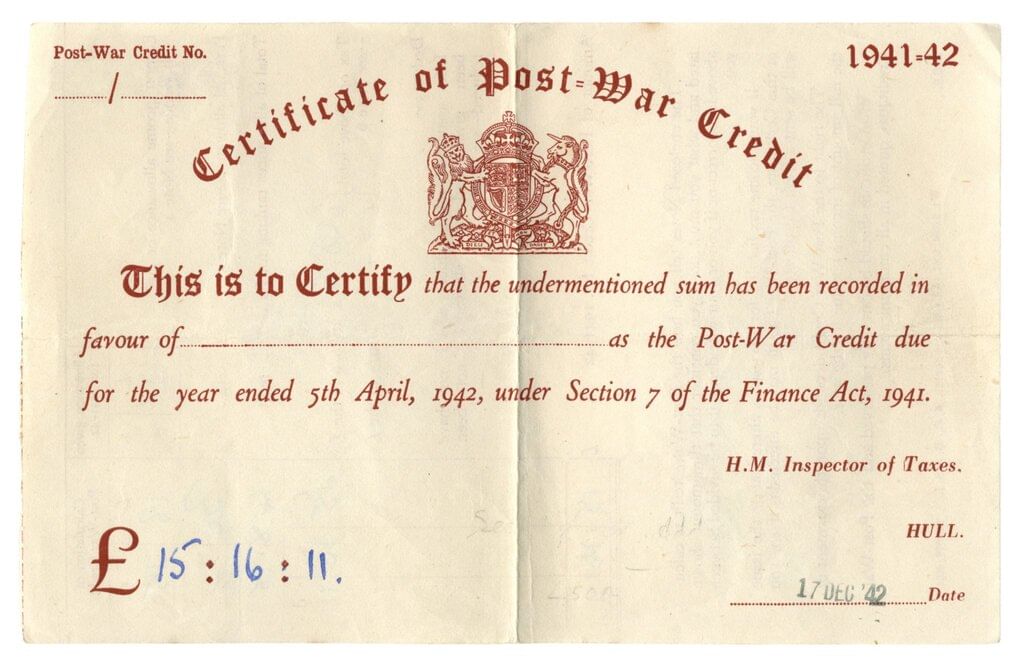 Post-War Credit No.
/
1941-42
Certificate of Post-War Credit
This is to Certify that the undermentioned sum has been recorded in
favour of as the Post-War Credit due
for the year ended 5th April, 1942, under Section 7 of the Finance Act, 1941.
H.M. Inspector of Taxes.
HULL.
£ 15 : 16 : 11.
17 DEC '42 Date